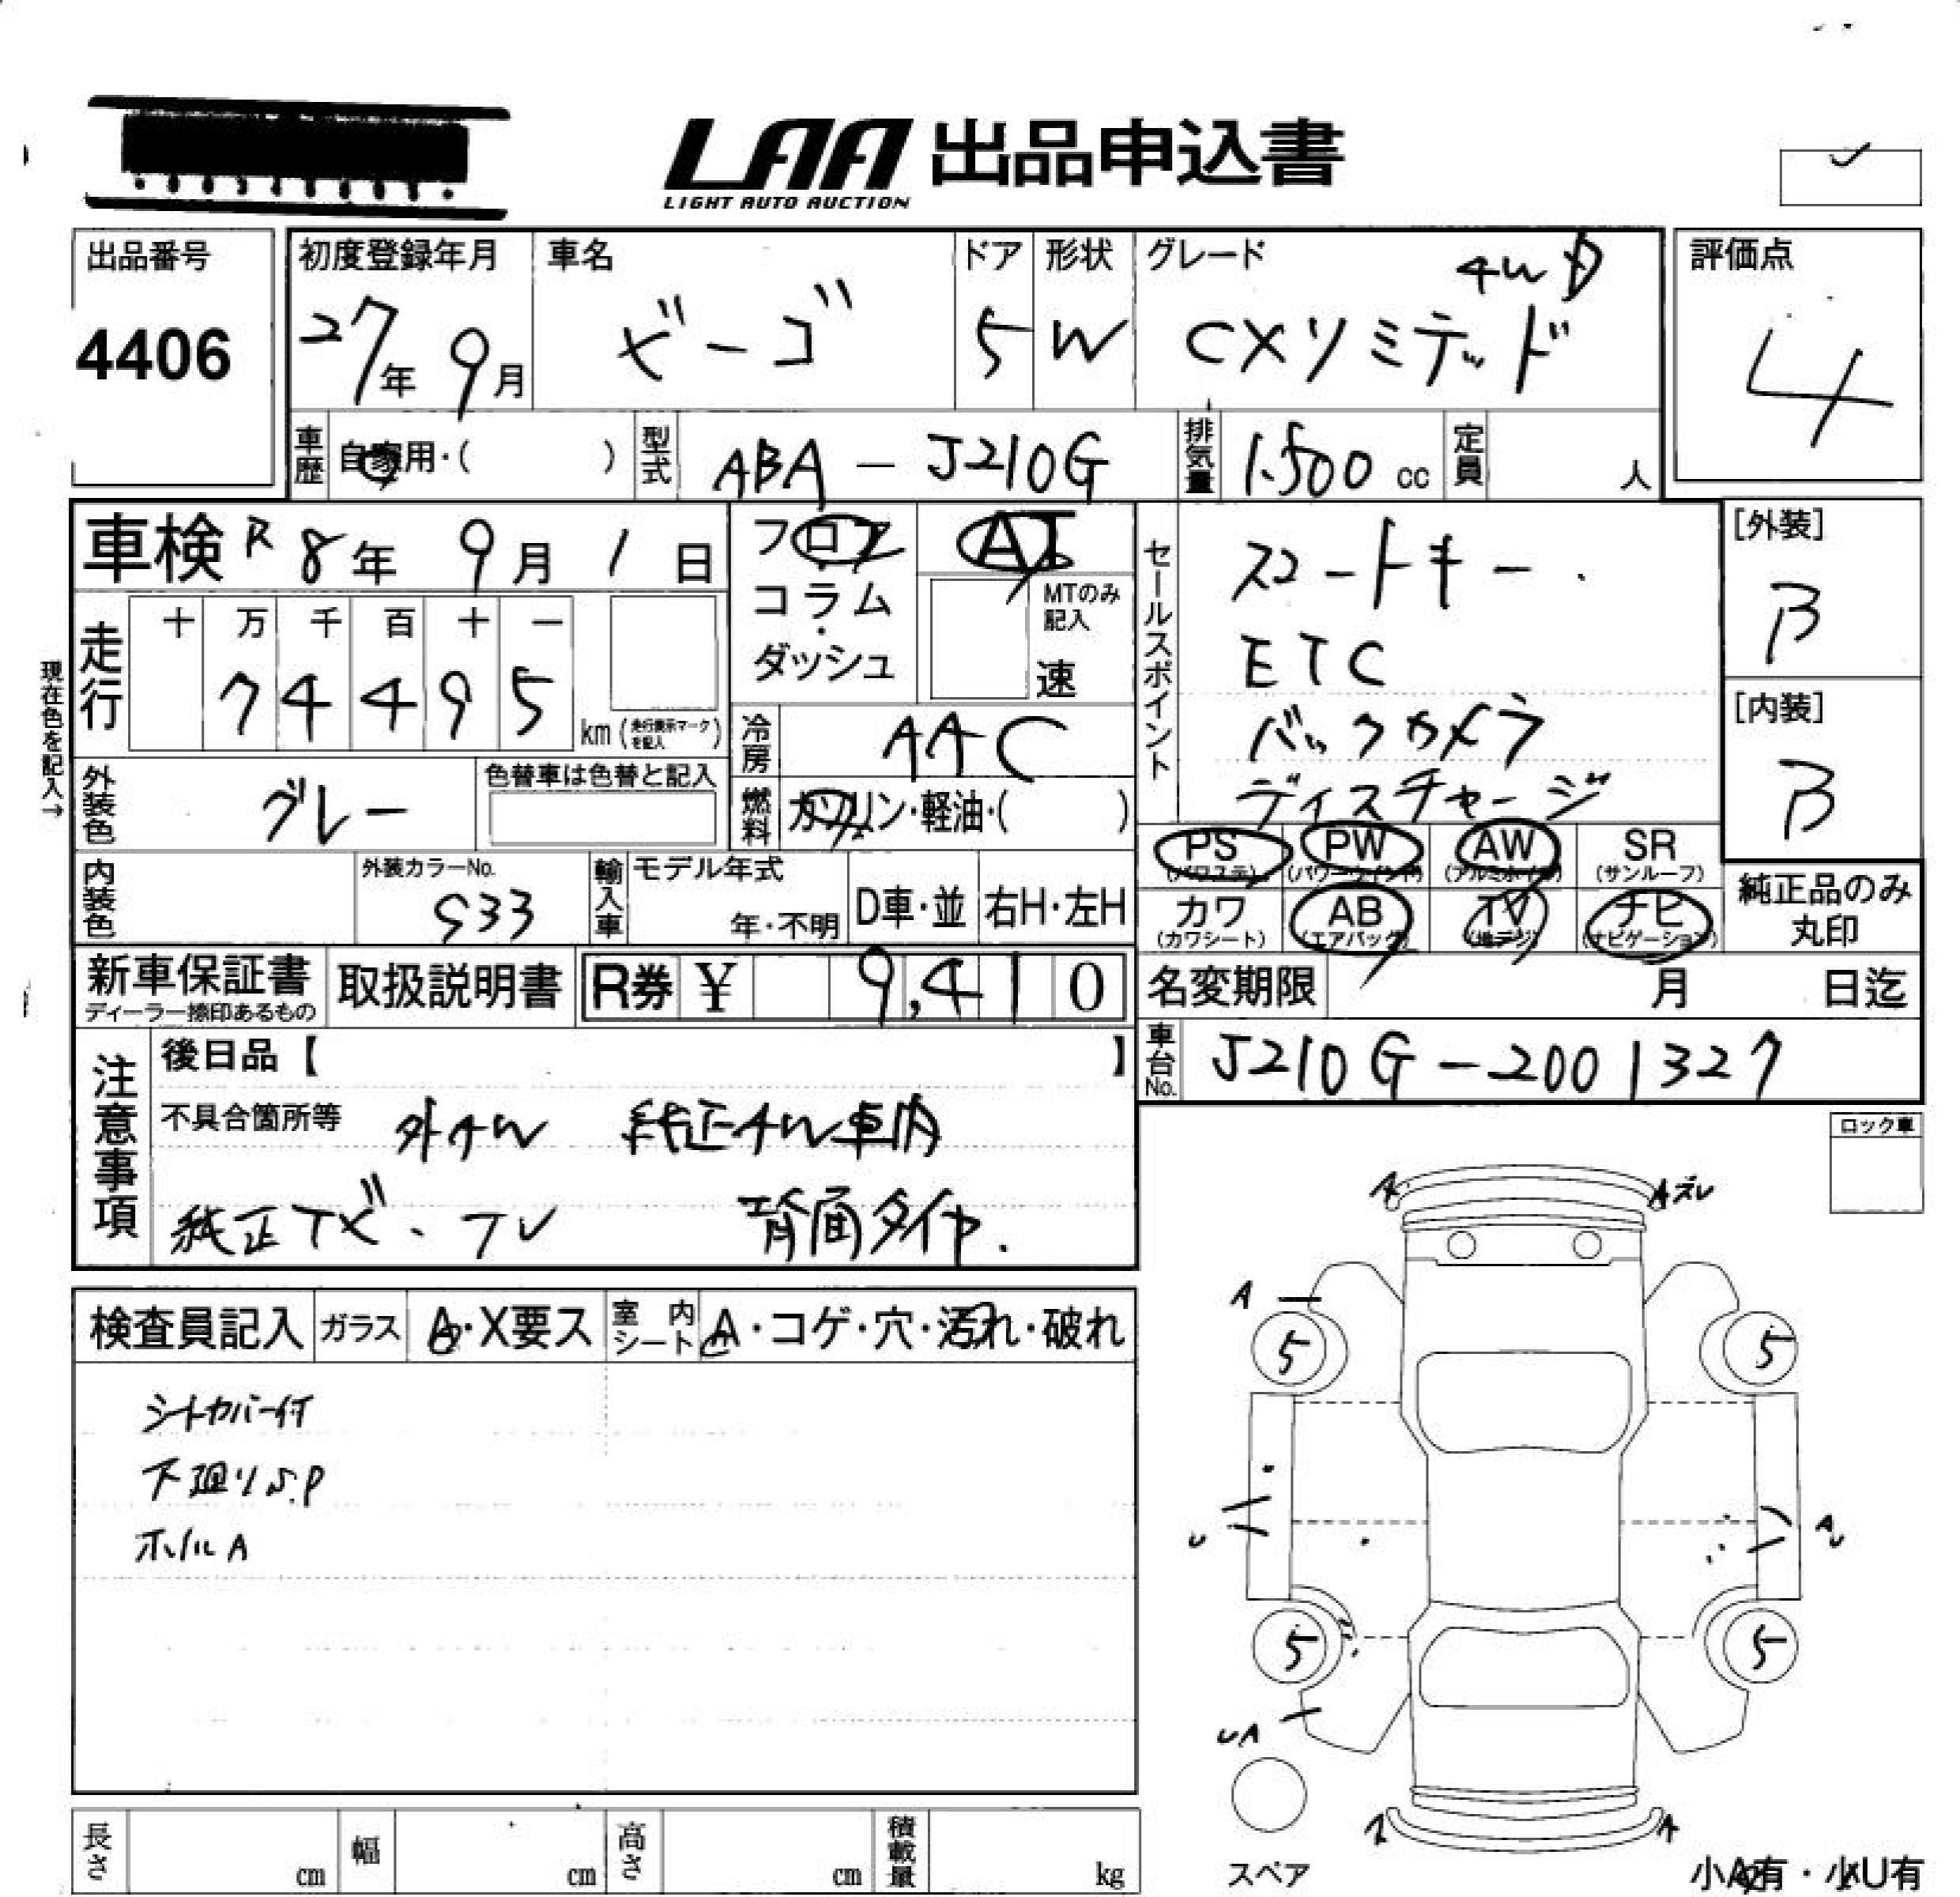 LAA 出品申込書
LIGHT AUTO AUCTION
出品番号
4406
初度登録年月
27年 9月
車名
ビーゴ
ドア
5
形状
W
グレード
4WD
CXリミテッド
評価点
4
車歴
自家用・( )
型式
ABA - J210G
排気量
1.500 cc
定員
人
車検 R 8年 9月 1日
フロア・コラム・ダッシュ
AT
MTのみ記入
速
セールスポイント
スマートキー.
ETC
バックカメラ
ディスチャージ
[外装]
B
[内装]
B
現在色を記入→
走行
十 万 千 百 十 一
7 4 4 9 5
km (走行表示マークを記入)
冷房
AAC
外装色
グレー
色替車は色替と記入
燃料
ガソリン・軽油・( )
PS
(パワステ)
PW
(パワーウインド)
AW
(アルミホイル)
SR
(サンルーフ)
カワ
(カワシート)
AB
(エアバッグ)
TV
(地デジ)
ナビ
(ナビゲーション)
純正品のみ
丸印
内装色
外装カラーNo.
S33
輸入車
モデル年式
年・不明
D車・並
右H・左H
新車保証書
ディーラー捺印あるもの
取扱説明書
R券 ¥ 9,410
名変期限
月 日迄
車台No.
J210G-2001327
注意事項
後日品【 】
不具合箇所等
外AW 純正AW車内
純正ナビ・TV 背面タイヤ.
ロック車
検査員記入
ガラス
A・X要ス
室内シート
A・コゲ・穴・汚れ・破れ
シートカバー付
下廻りS.P
ホイルA
A
Aズレ
A
5
5
U
AU
5
5
UA
A
A
スペア
小A有・小U有
長さ
cm
幅
cm
高さ
cm
積載量
kg